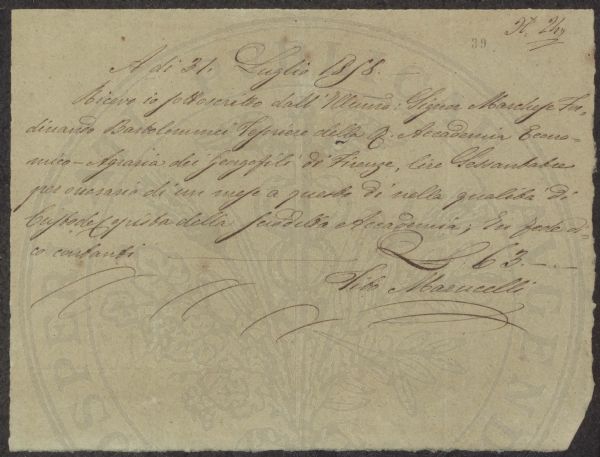 39
A di 31. Luglio 1858.
Ricevo io sottoscritto dall' Illmo: Signor Marchese Fer-
dinando Bartolommei Tesoriere della R. Accademia Econo-
mico-Agraria dei Georgofili di Firenze, lire Sessantatre
per onorario di un mese a questo dì nella qualità di
Custode Copista della suddetta Accademia; In fede di-
co contanti
£ 63 -
Marucelli
PROSPERITÀ